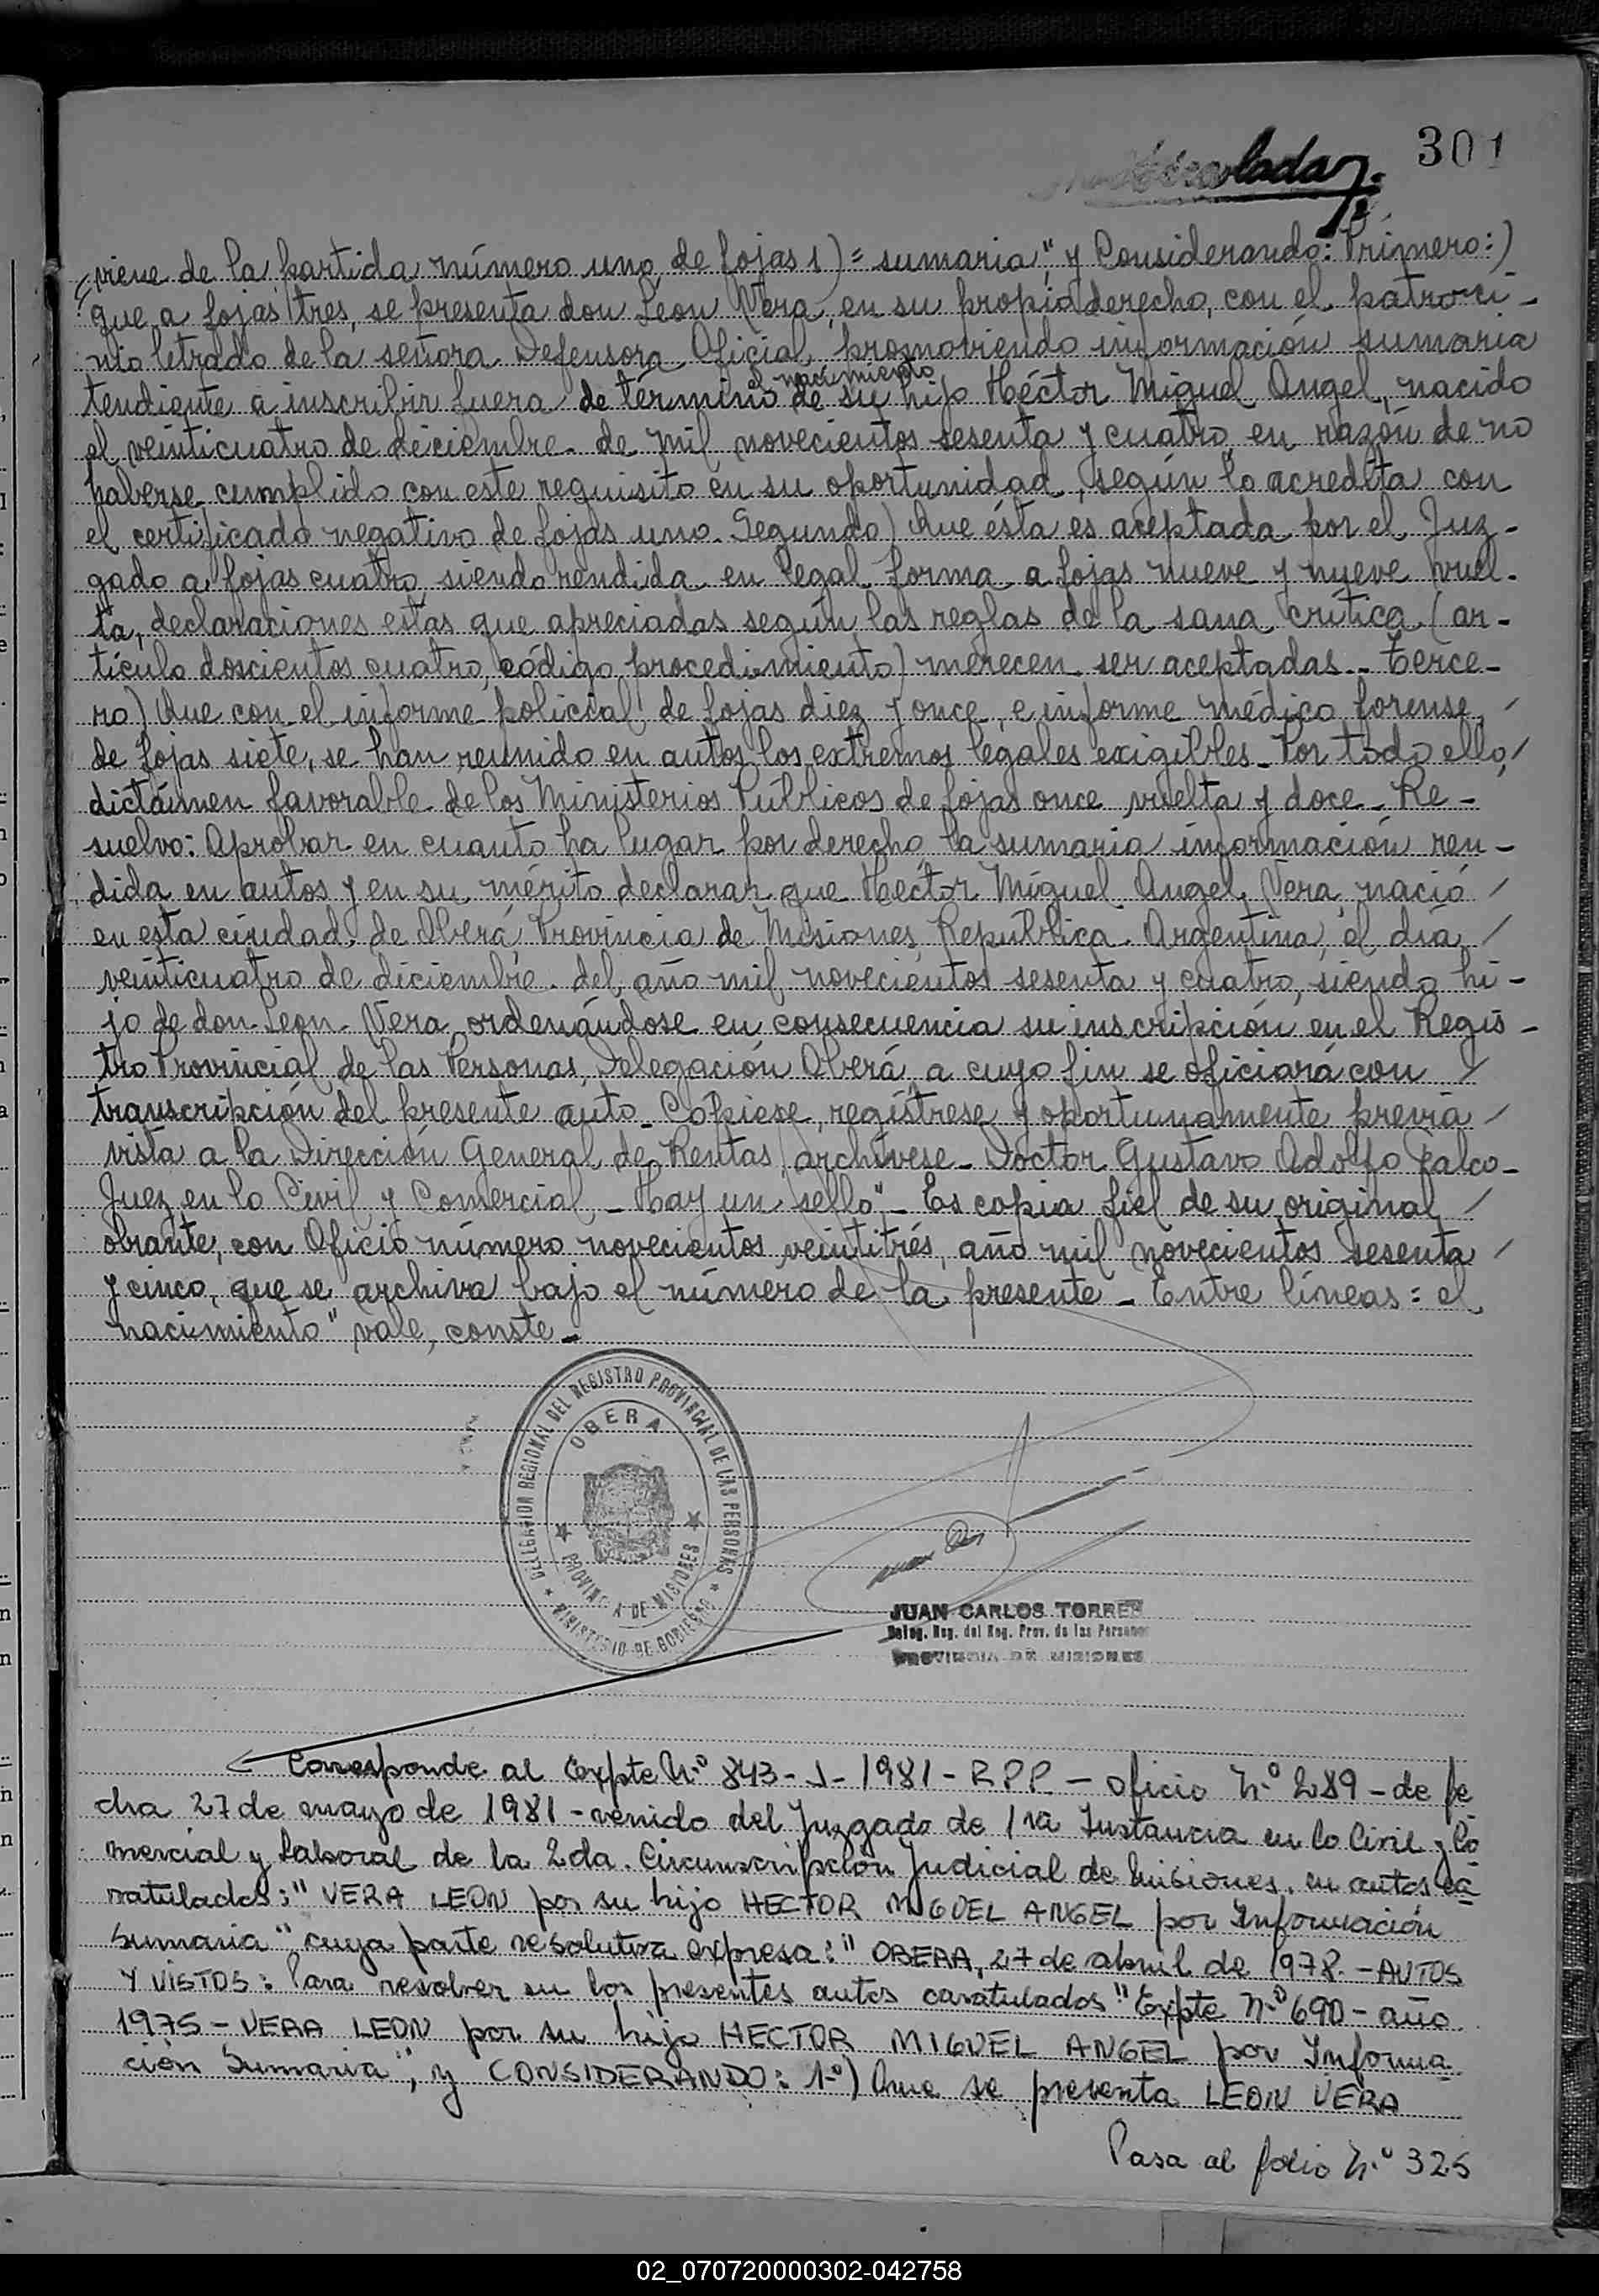 301
(viene de la partida número uno de fojas 1) = sumaria", y Considerando: Primero:)
que a fojas tres, se presenta don León Vera, en su propio derecho, con el patroci-
nio letrado de la señora Defensora Oficial, promoviendo información sumaria
el nacimiento
tendiente a inscribir fuera de término de su hijo Héctor Miguel Angel, nacido
el veinticuatro de diciembre de mil novecientos sesenta y cuatro, en razón de no
haberse cumplido con este requisito en su oportunidad, según lo acredita con
el certificado negativo de fojas uno. Segundo) Que ésta es aceptada por el Juz-
gado a fojas cuatro, siendo rendida en legal forma a fojas nueve y nueve vuel-
ta, declaraciones estas que apreciadas según las reglas de la sana crítica (ar-
tículo doscientos cuatro, código procedimiento) merecen ser aceptadas.- Terce-
ro) Que con el informe policial de fojas diez y once, e informe médico forense,
de fojas siete, se han reunido en autos los extremos legales exigibles. Por todo ello,
dictámen favorable de los Ministerios Públicos de fojas once vuelta y doce - Re-
suelvo: Aprobar en cuanto ha lugar por derecho, la sumaria información ren-
dida en autos y en su mérito declarar que Hectór Miguel Angel Vera, nació
en esta ciudad de Oberá Provincia de Misiones República Argentina, el día
veinticuatro de diciembre del año mil novecientos sesenta y cuatro, siendo hi-
jo de don León Vera, ordenándose en consecuencia su inscripción en el Regis-
tro Provincial de las Personas, Delegación Oberá, a cuyo fin se oficiará con
transcripción del presente auto - Cópiese, regístrese y oportunamente previa
vista a la Dirección General de Rentas, archívese - Doctor Gustavo Adolfo Falco -
Juez en lo Civil y Comercial - Hay un sello" - Es copia fiel de su original
obrante, con Oficio número novecientos veintitrés, año mil novecientos sesenta
y cinco, que se archiva bajo el número de la presente - Entre líneas: el
nacimiento" vale, conste -
DELEGACION REGIONAL DEL REGISTRO PROVINCIAL DE LAS PERSONAS
OBERA
PROVINCIA DE MISIONES
MINISTERIO DE GOBIERNO
JUAN CARLOS TORRES
Deleg. Reg. del Reg. Prov. de las Personas
PROVINCIA DE MISIONES
Corresponde al Expte N.º 843-J-1981-RPP.- Oficio N.º 289-de fe
cha 27 de mayo de 1981-venido del Juzgado de 1ra Instancia en lo Civil y Co
mercial y Laboral de la 2da. Circunscripción Judicial de Misiones, en autos ca
ratulados:" VERA LEON por su hijo HECTOR MIGUEL ANGEL por Información
Sumaria" cuya parte resolutiva expresa:" OBERA, 27 de abril de 1978.-AUTOS
Y VISTOS: Para resolver en los presentes autos caratulados "Expte N.º 690-año
1975-VERA LEON por su hijo HECTOR MIGUEL ANGEL por Informa
ción Sumaria", y CONSIDERANDO: 1º) Que se presenta LEON VERA
Pasa al folio N.º 325
02_070720000302-042758